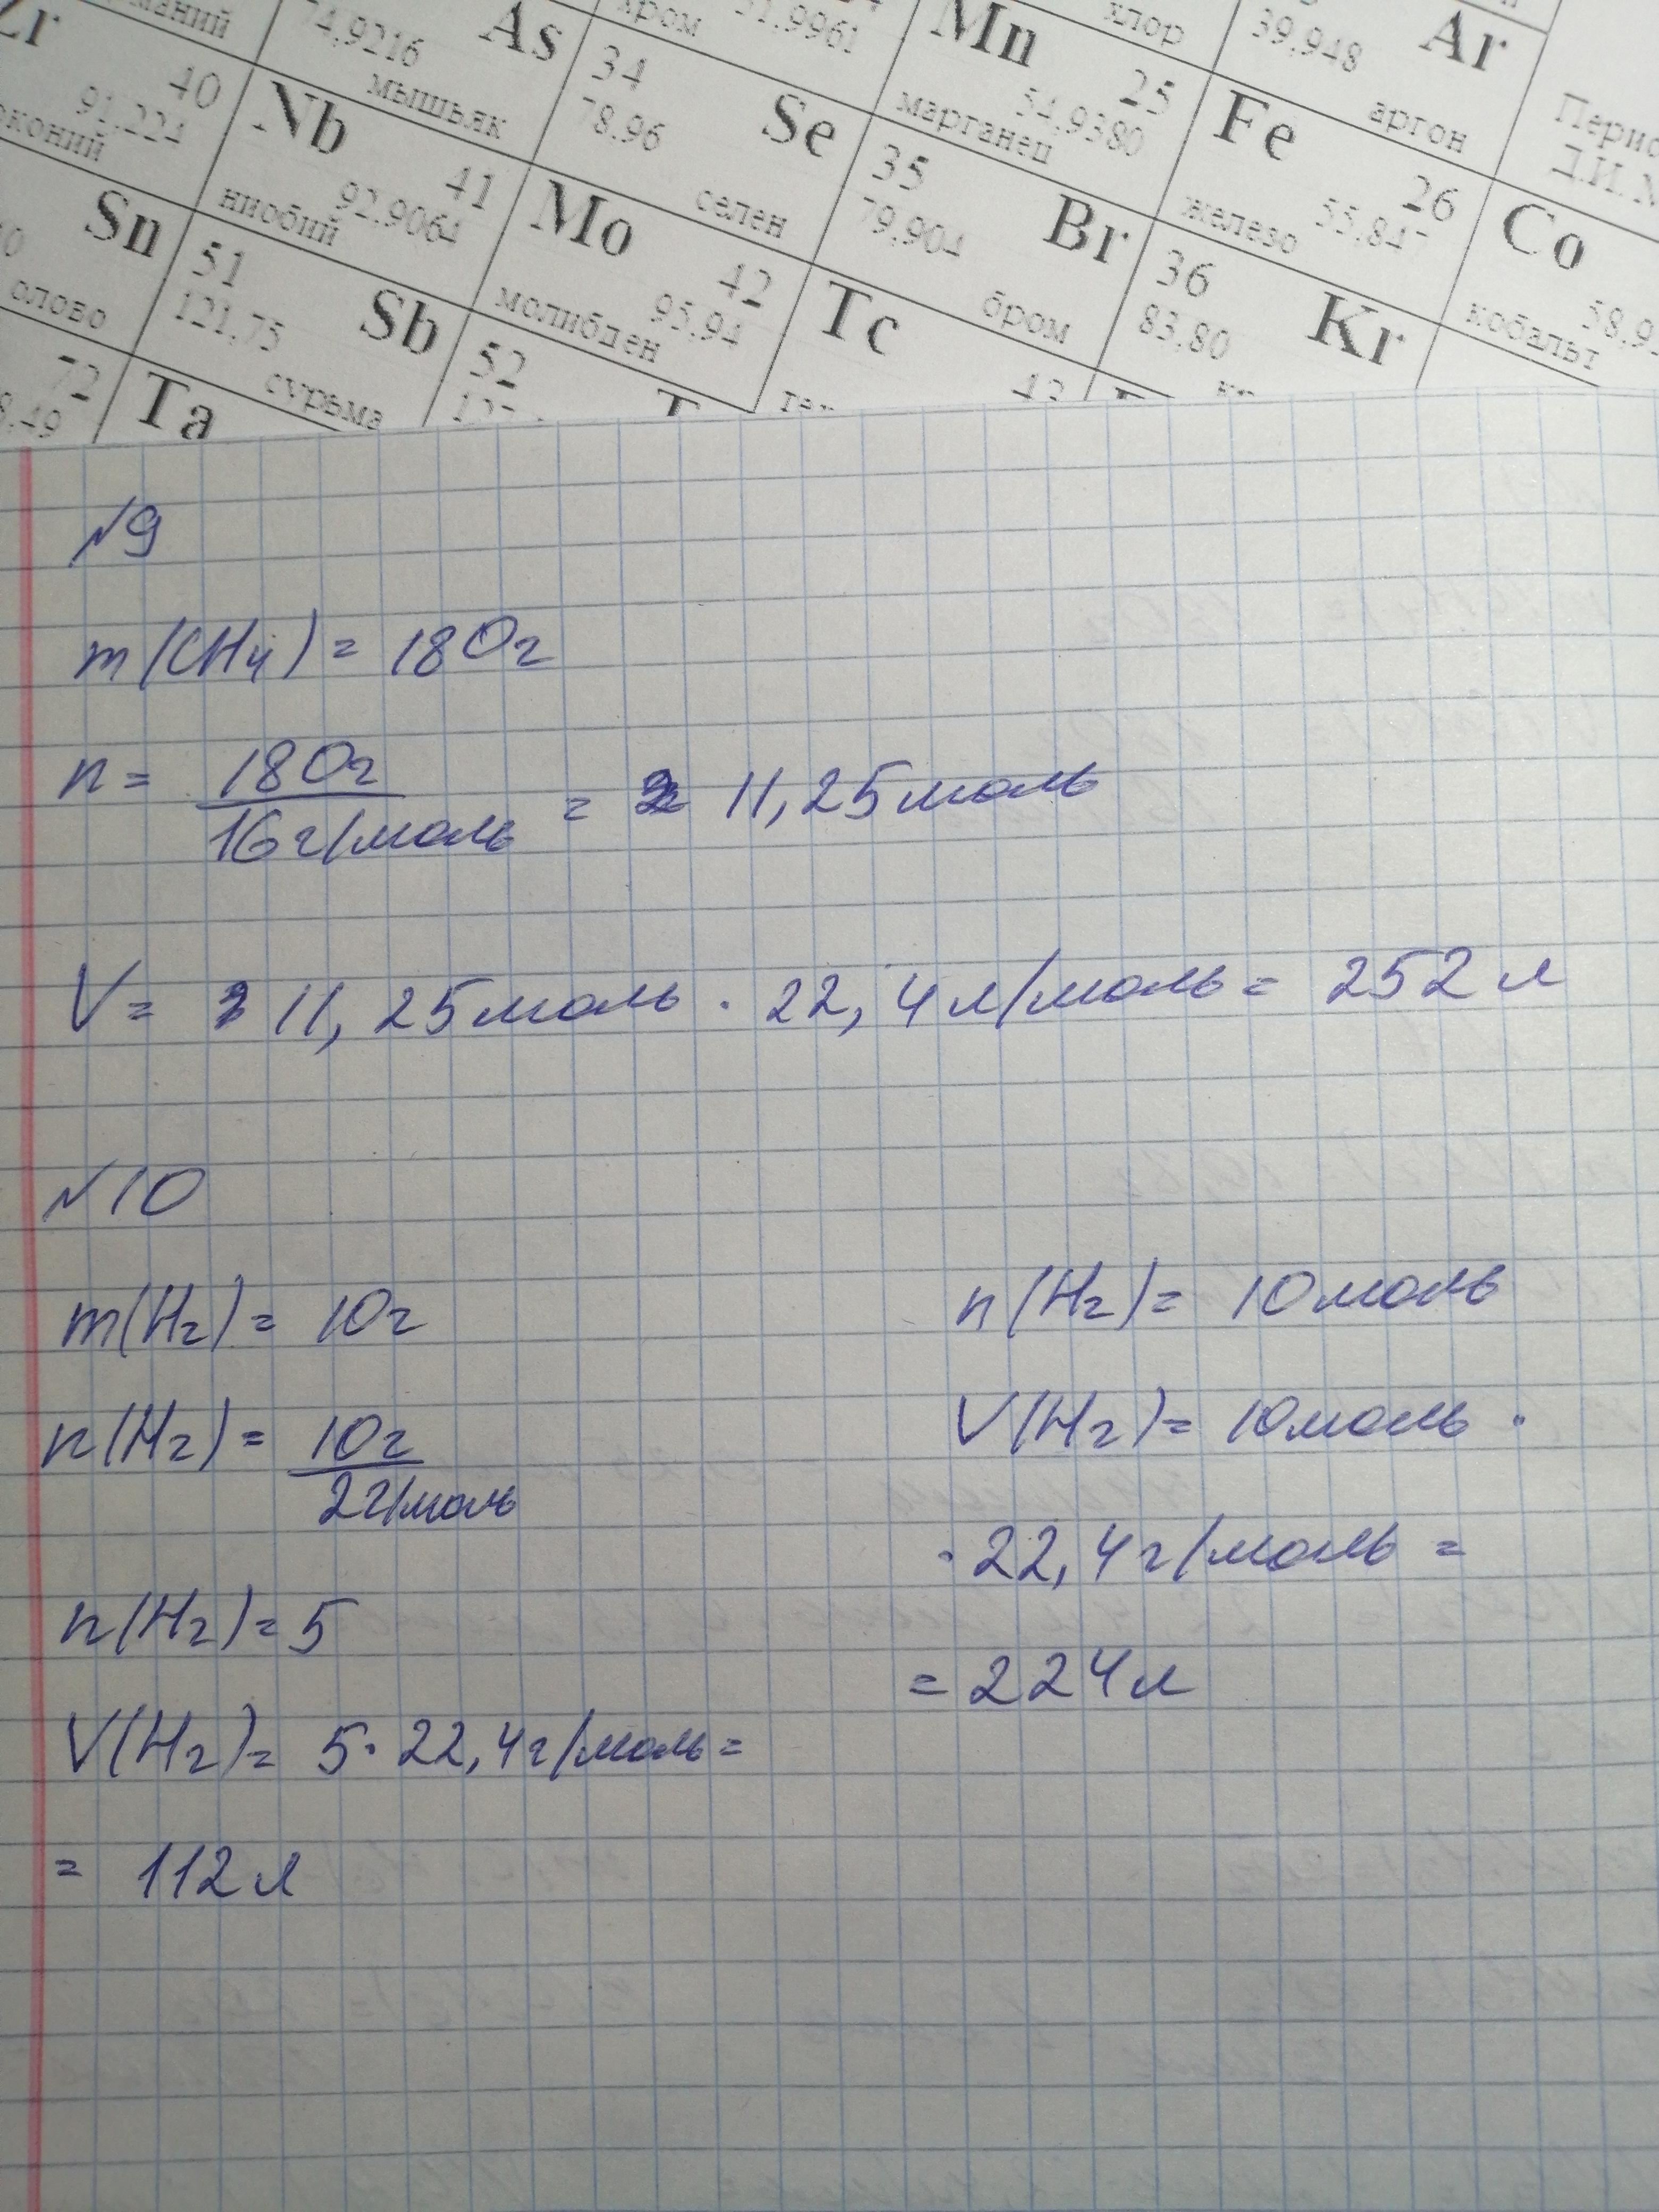 Zr
As
74,9216
мышьяк
хром
51,9961
Mn
25
54,9380
марганец
хлор
39,948
Ar
аргон
40
91,224
Nb
41
92,9064
ниобий
34
78,96
Se
селен
Mo
42
95,94
молибден
35
79,904
Br
бром
Fe
26
55,847
железо
Co
кобальт
Sn
олово
51
121,75
Sb
сурьма
52
Tc
36
83,80
Kr
72
Ta
43
№9
m(CH4) = 180г
n = 180г / 16г/моль = 11,25моль
V = 11,25моль · 22,4л/моль = 252 л
№10
m(H2) = 10г
n(H2) = 10г / 2г/моль
n(H2) = 5
V(H2) = 5 · 22,4г/моль =
= 112 л
n(H2) = 10моль
V(H2) = 10моль ·
· 22,4г/моль =
= 224л